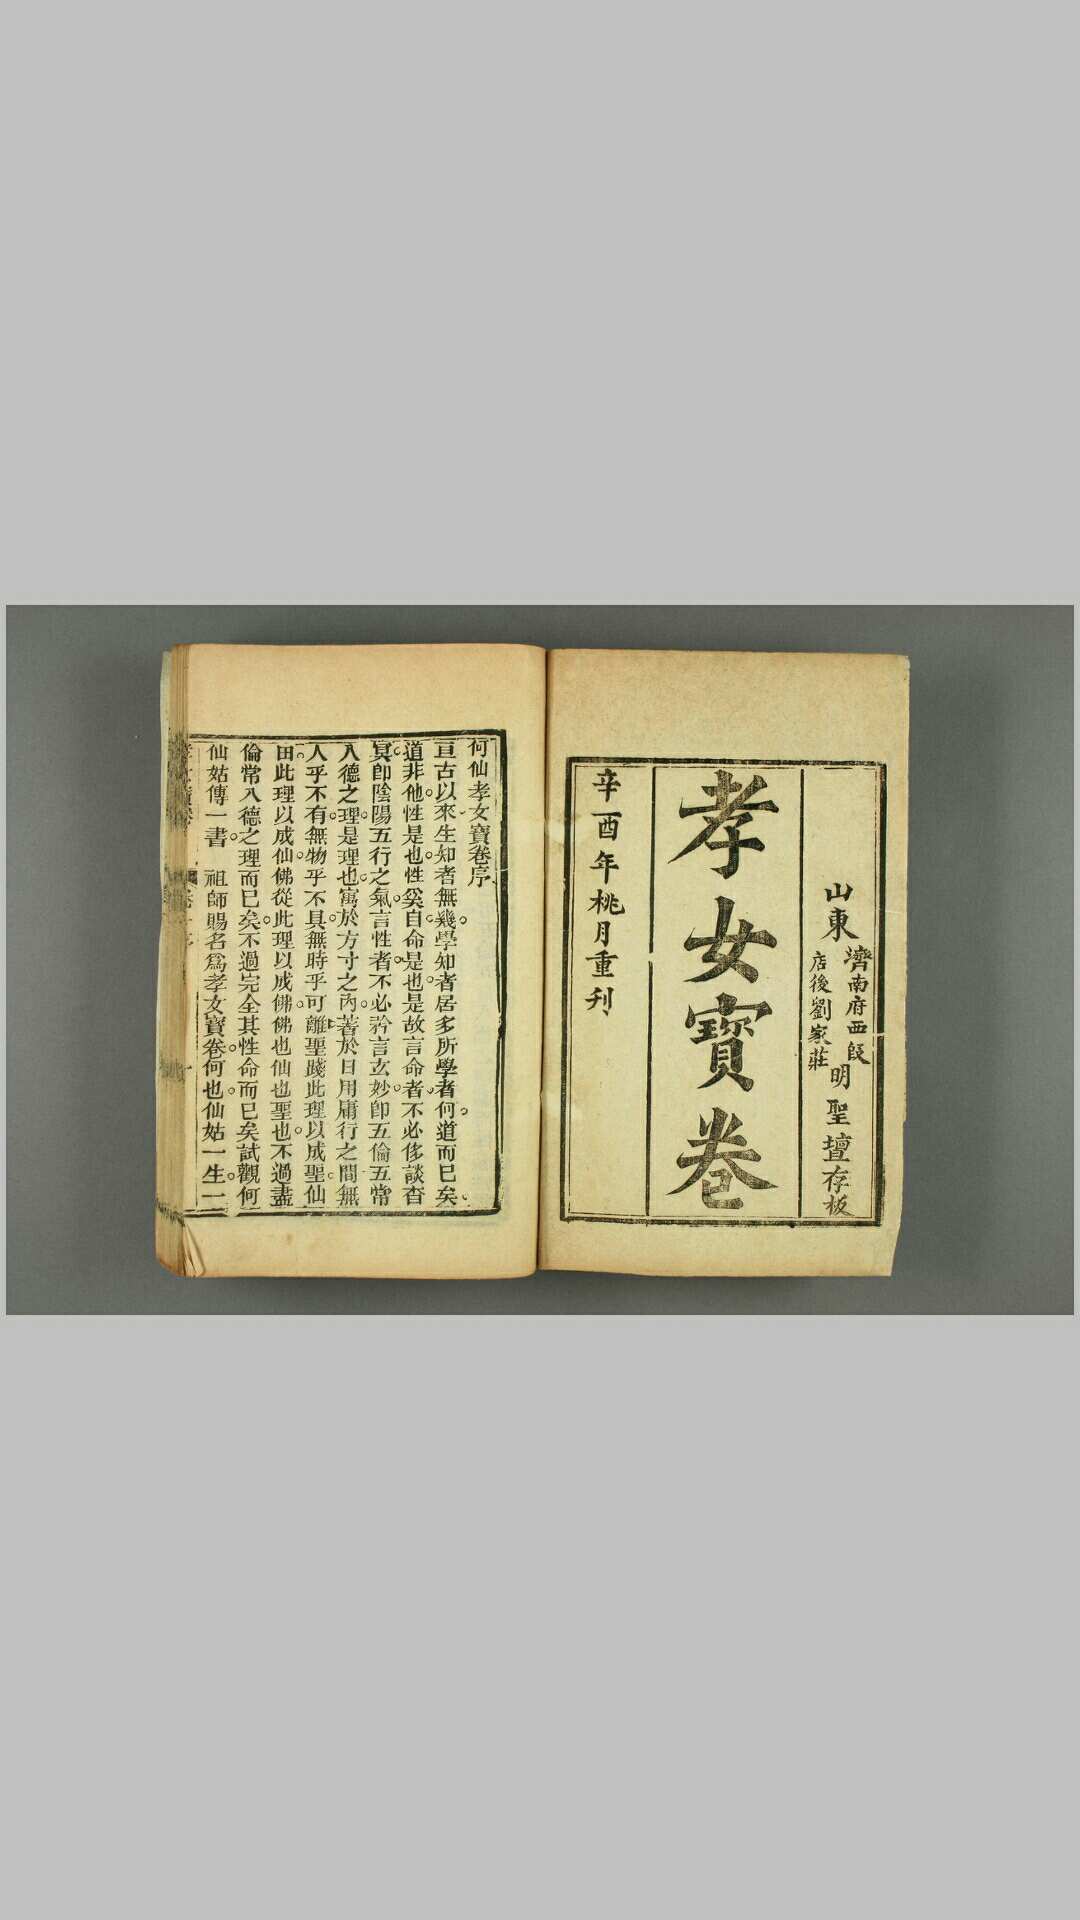 山東
濟南府西段
店後劉家莊
明聖壇存板
孝女寶卷
辛酉年桃月重刋
何仙孝女寶卷序
亘古以來生知者無幾學知者居多所學者何道而已矣
道非他性是也性奚自命是也是故言命者不必侈談杳
冥卽陰陽五行之氣言性者不必矜言玄妙卽五倫五常
八德之理是理也寓於方寸之內著於日用庸行之間無
人乎不有無物乎不具無時乎可離聖踐此理以成聖仙
由此理以成仙佛從此理以成佛佛也仙也聖也不過盡
倫常八德之理而已矣不過完全其性命而已矣試觀何
仙姑傳一書 祖師賜名爲孝女寶卷何也仙姑一生一